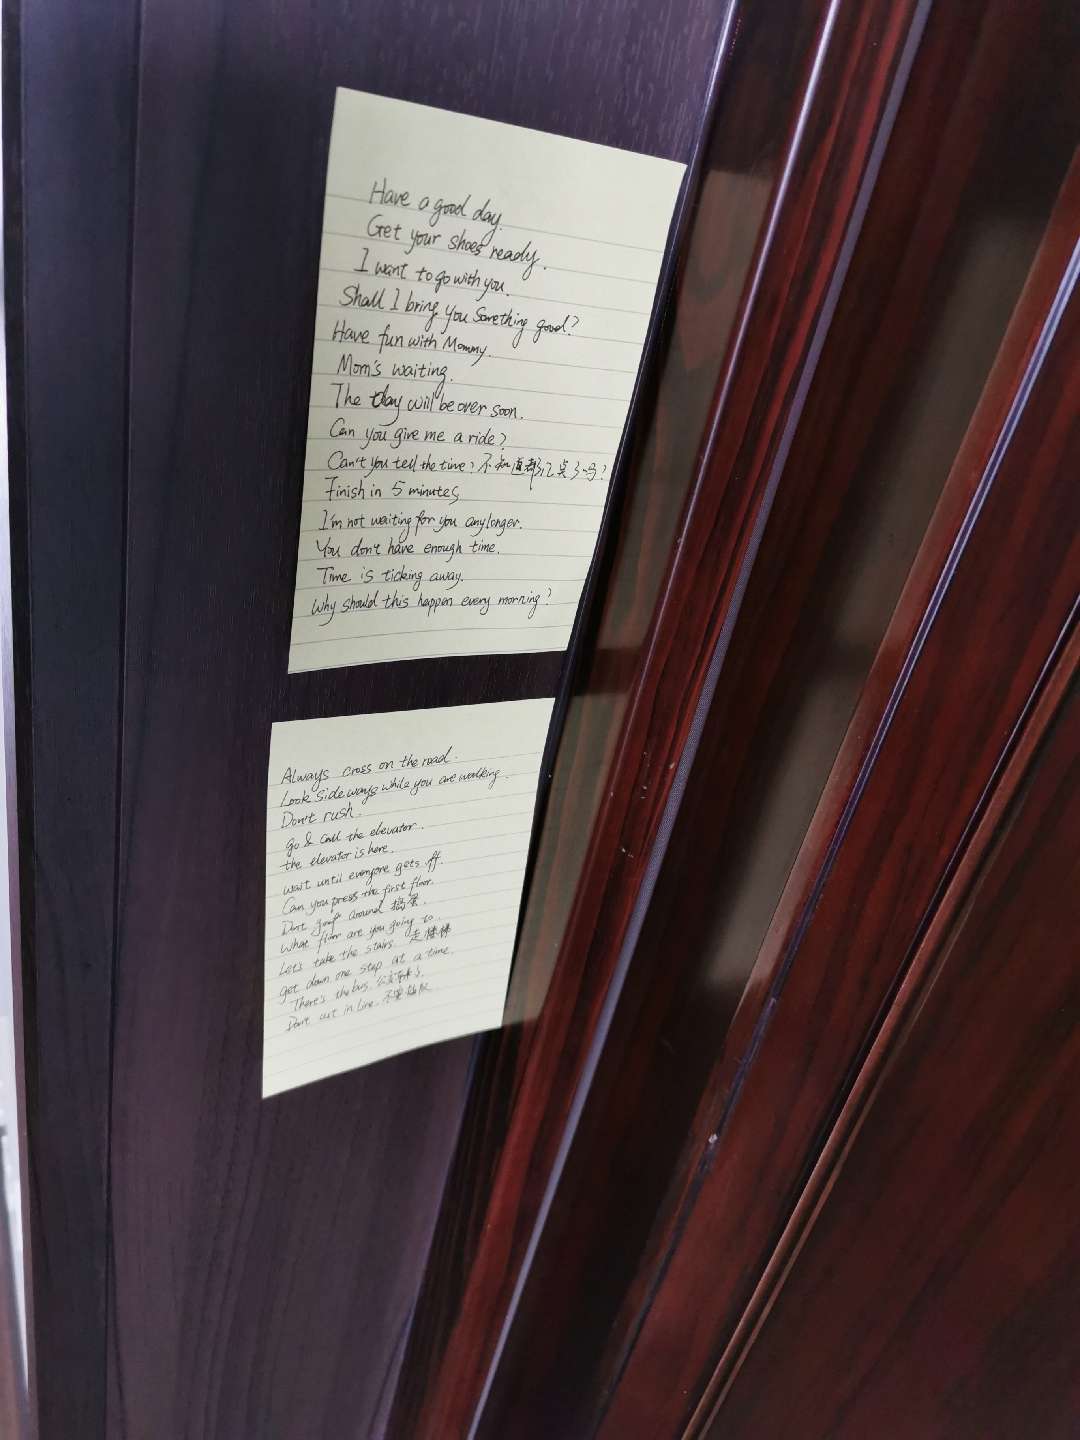 Have a good day.
Get your shoes ready.
I want to go with you.
Shall I bring you something good?
Have fun with Mommy.
Mom's waiting.
The day will be over soon.
Can you give me a ride?
Can't you tell the time? 不知道都几点了吗?
Finish in 5 minutes
I'm not waiting for you any longer.
You don't have enough time.
Time is ticking away.
Why should this happen every morning?
Always cross on the road.
Look sideways while you are walking.
Don't rush.
Go & call the elevator.
the elevator is here.
wait until everyone gets off.
Can you press the first floor.
Don't around 捣蛋.
What floor are you going to.
Let's take the stairs. 走楼梯
get down one step at a time.
There's the bus.
Don't cut in line. 不要插队